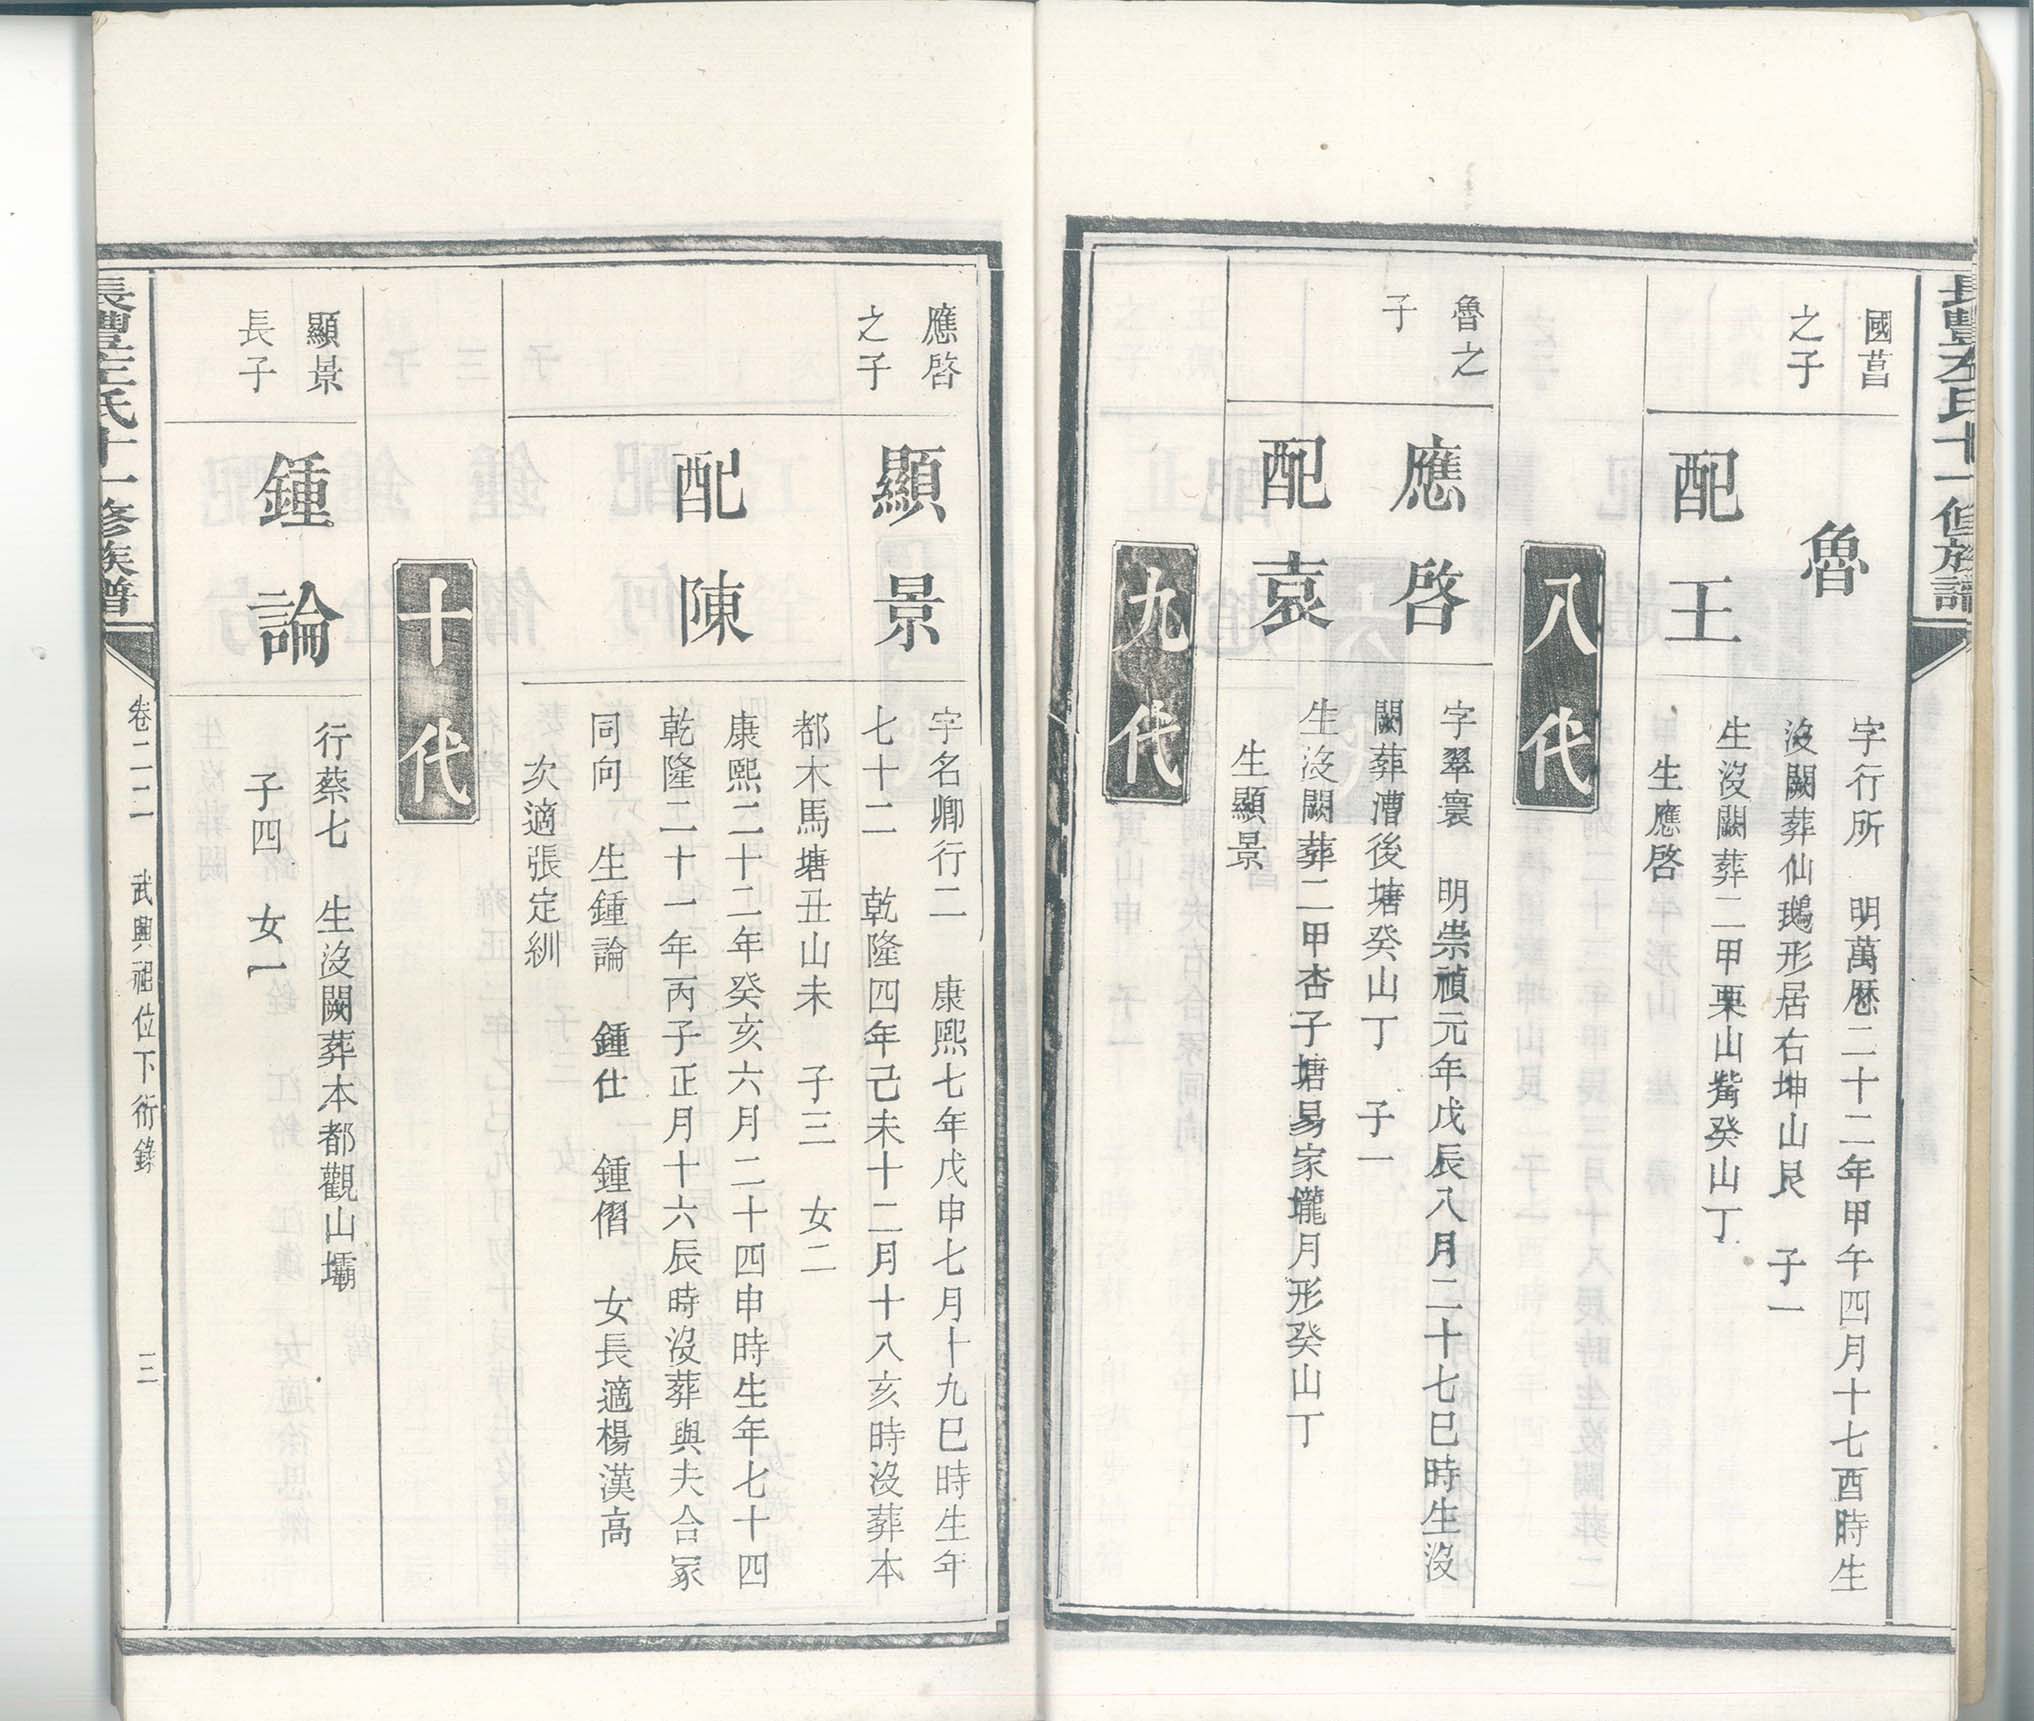 長豐左氏十一修族譜
國菖
之子
魯
配王
字行所　明萬厯二十二年甲午四月十七酉時生
沒闕葬仙鵝形居右坤山艮　子一
生沒闕葬二甲栗山觜癸山丁
生應啓
八代
魯之
子
應啓
配袁
字翠寰　明崇禎元年戊辰八月二十七巳時生沒
闕葬漕後塘癸山丁　子一
生沒闕葬二甲杏子塘易家壠月形癸山丁
生顯景
九代
應啓
之子
顯景
配陳
字名卿行二　康熙七年戊申七月十九巳時生年
七十二　乾隆四年己未十二月十八亥時沒葬本
都木馬塘丑山未　子三　女二
康熙二十二年癸亥六月二十四申時生年七十四
乾隆二十一年丙子正月十六辰時沒葬與夫合冢
同向　生鍾論　鍾仕　鍾僭　女長適楊漢高
次適張定紃
十代
顯景
長子
鍾論
行蔡七　生沒闕葬本都觀山壩
子四　女一
長豐左氏十一修族譜
卷二二　武興祖位下衍錄　三